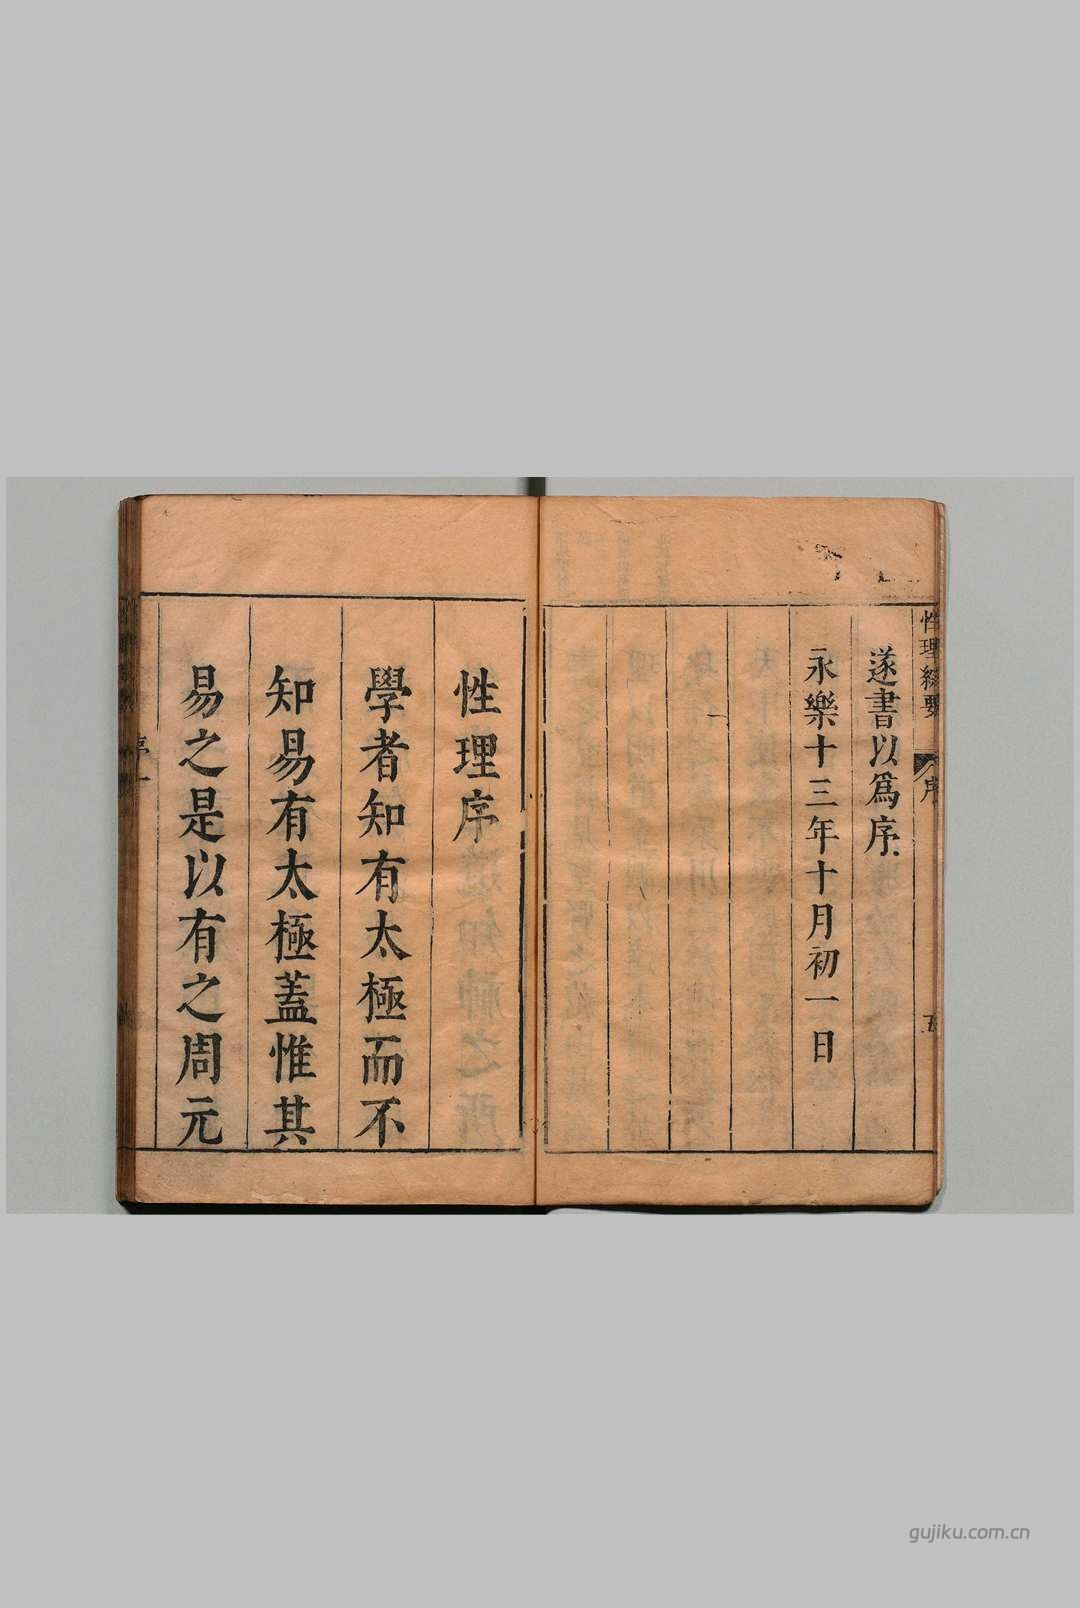 性理綜要 序 五
遂書以爲序
永樂十三年十月初一日
性理序
學者知有太極而不
知易有太極蓋惟其
易之是以有之周元
序 一
gujiku.com.cn